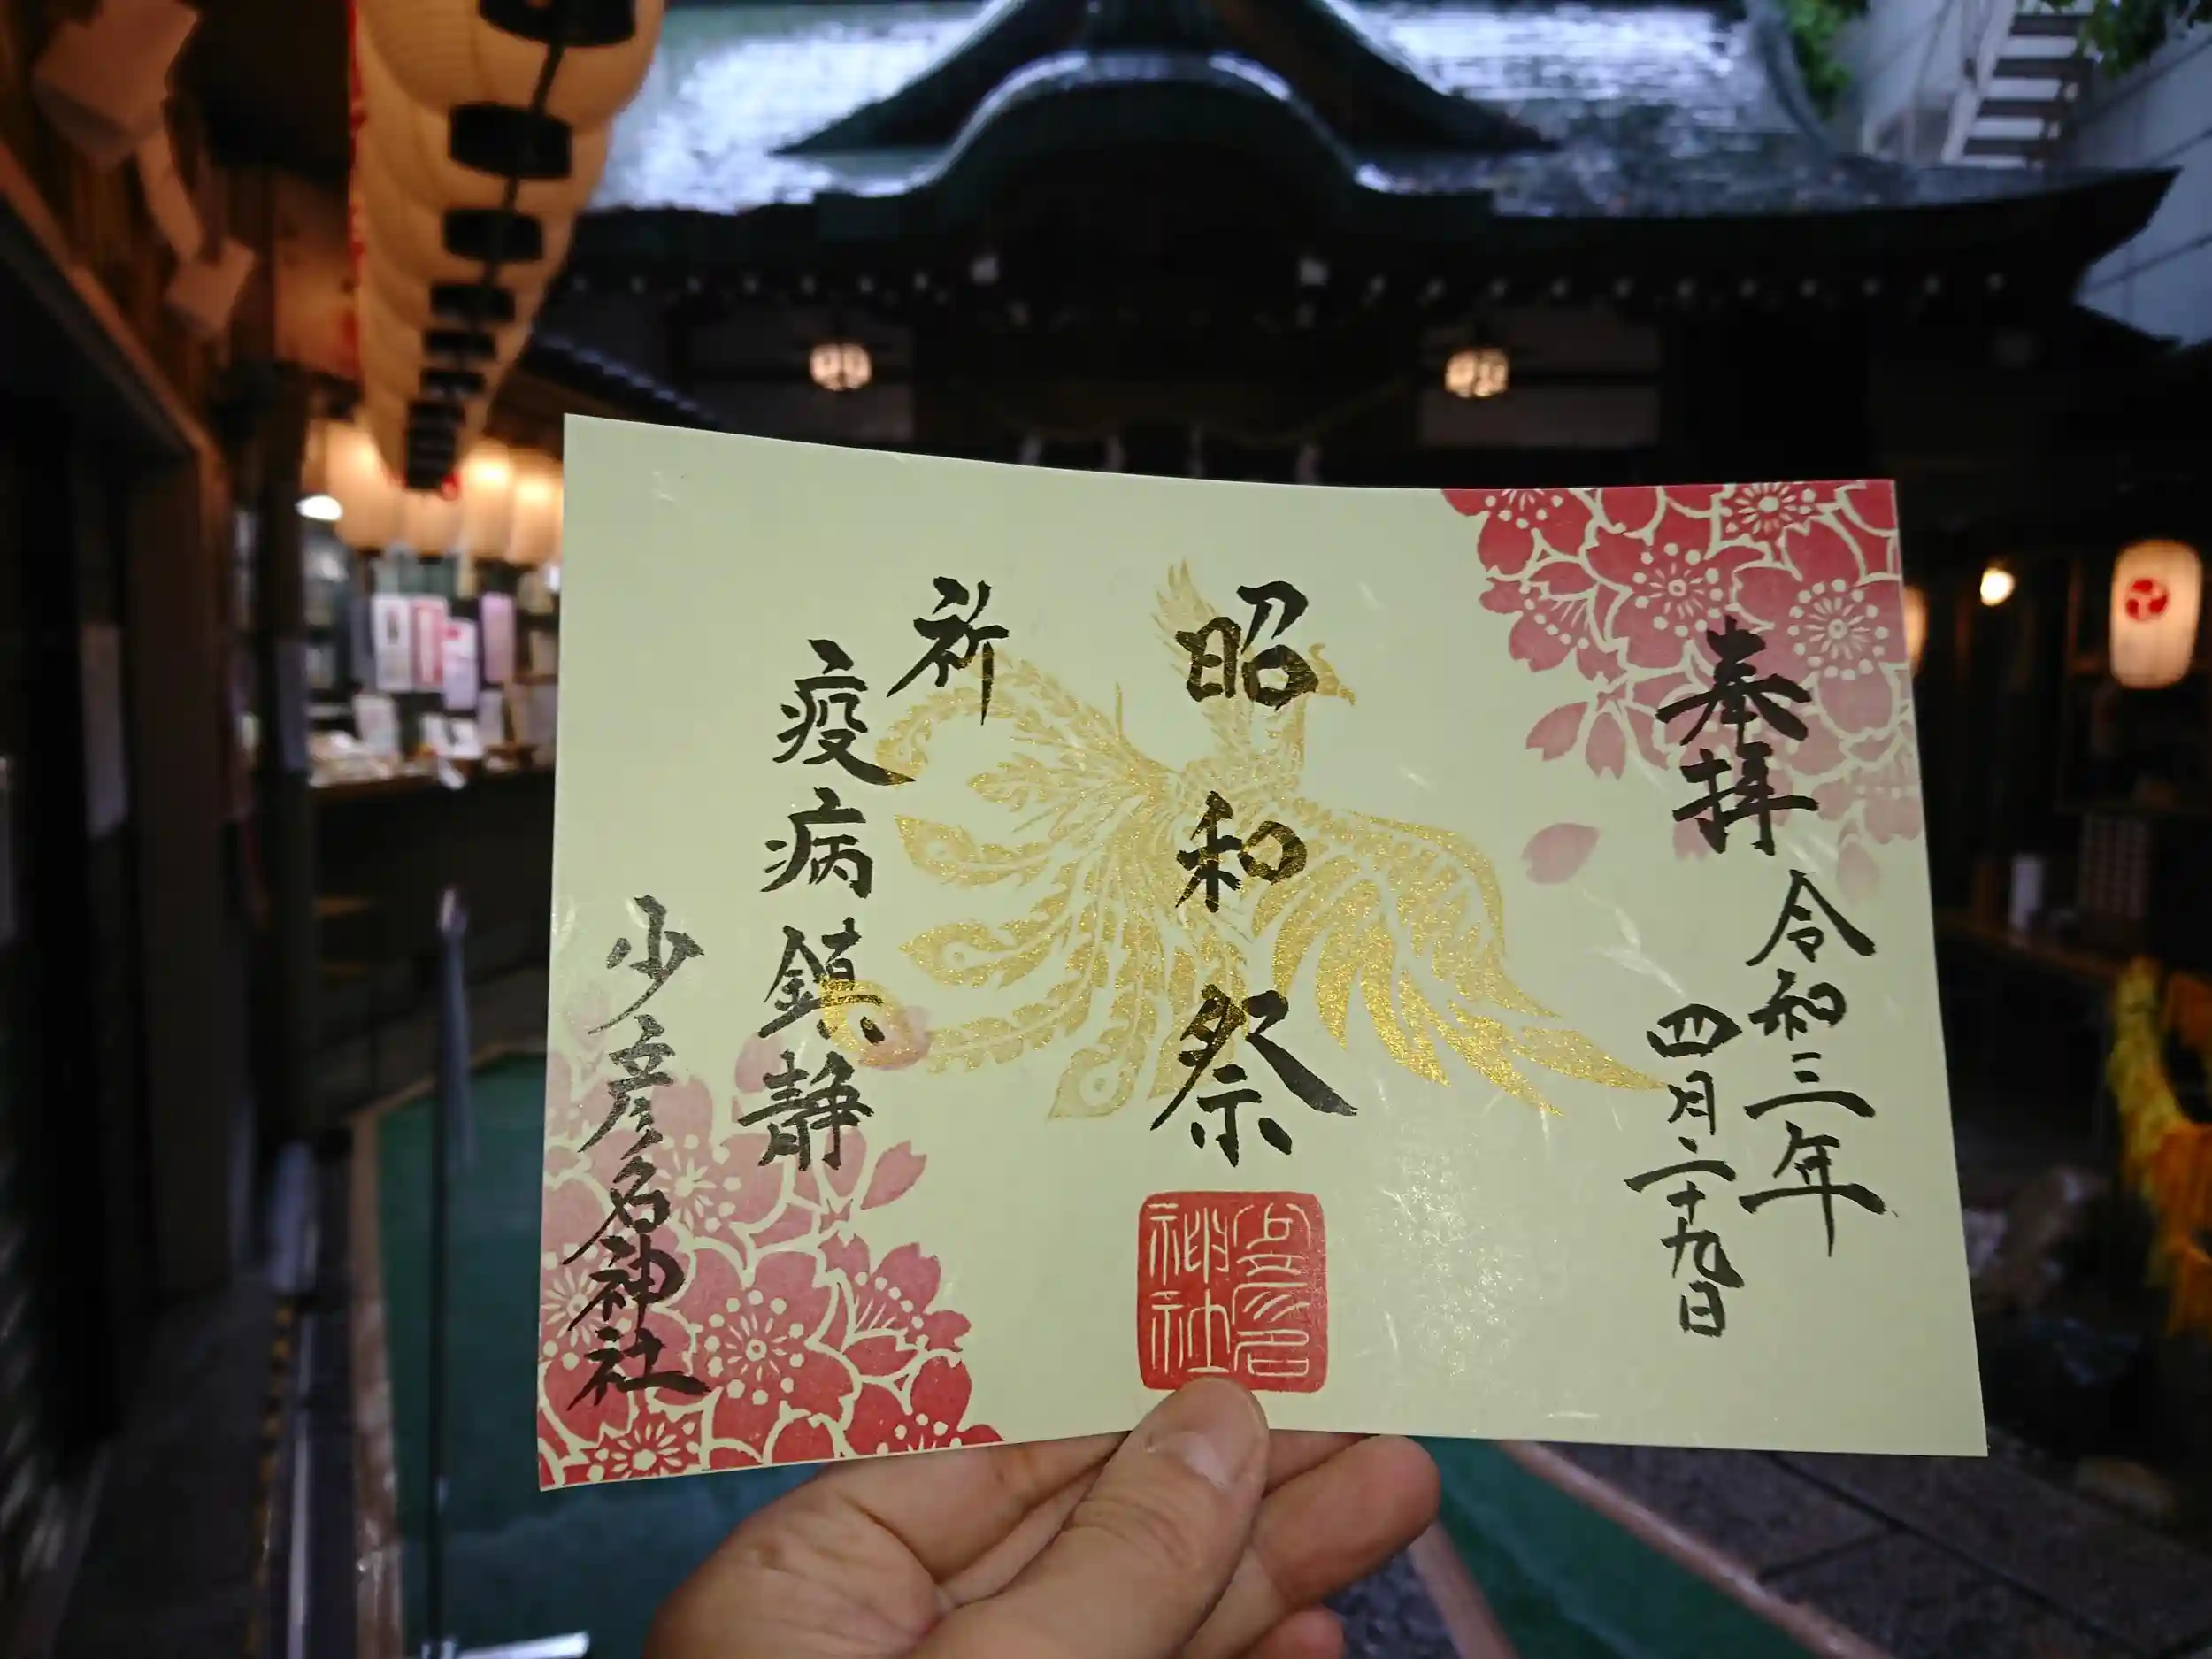 奉拝
令和三年
四月二十九日
昭和祭
祈
疫病鎮静
少彦名神社
少彦名
神社